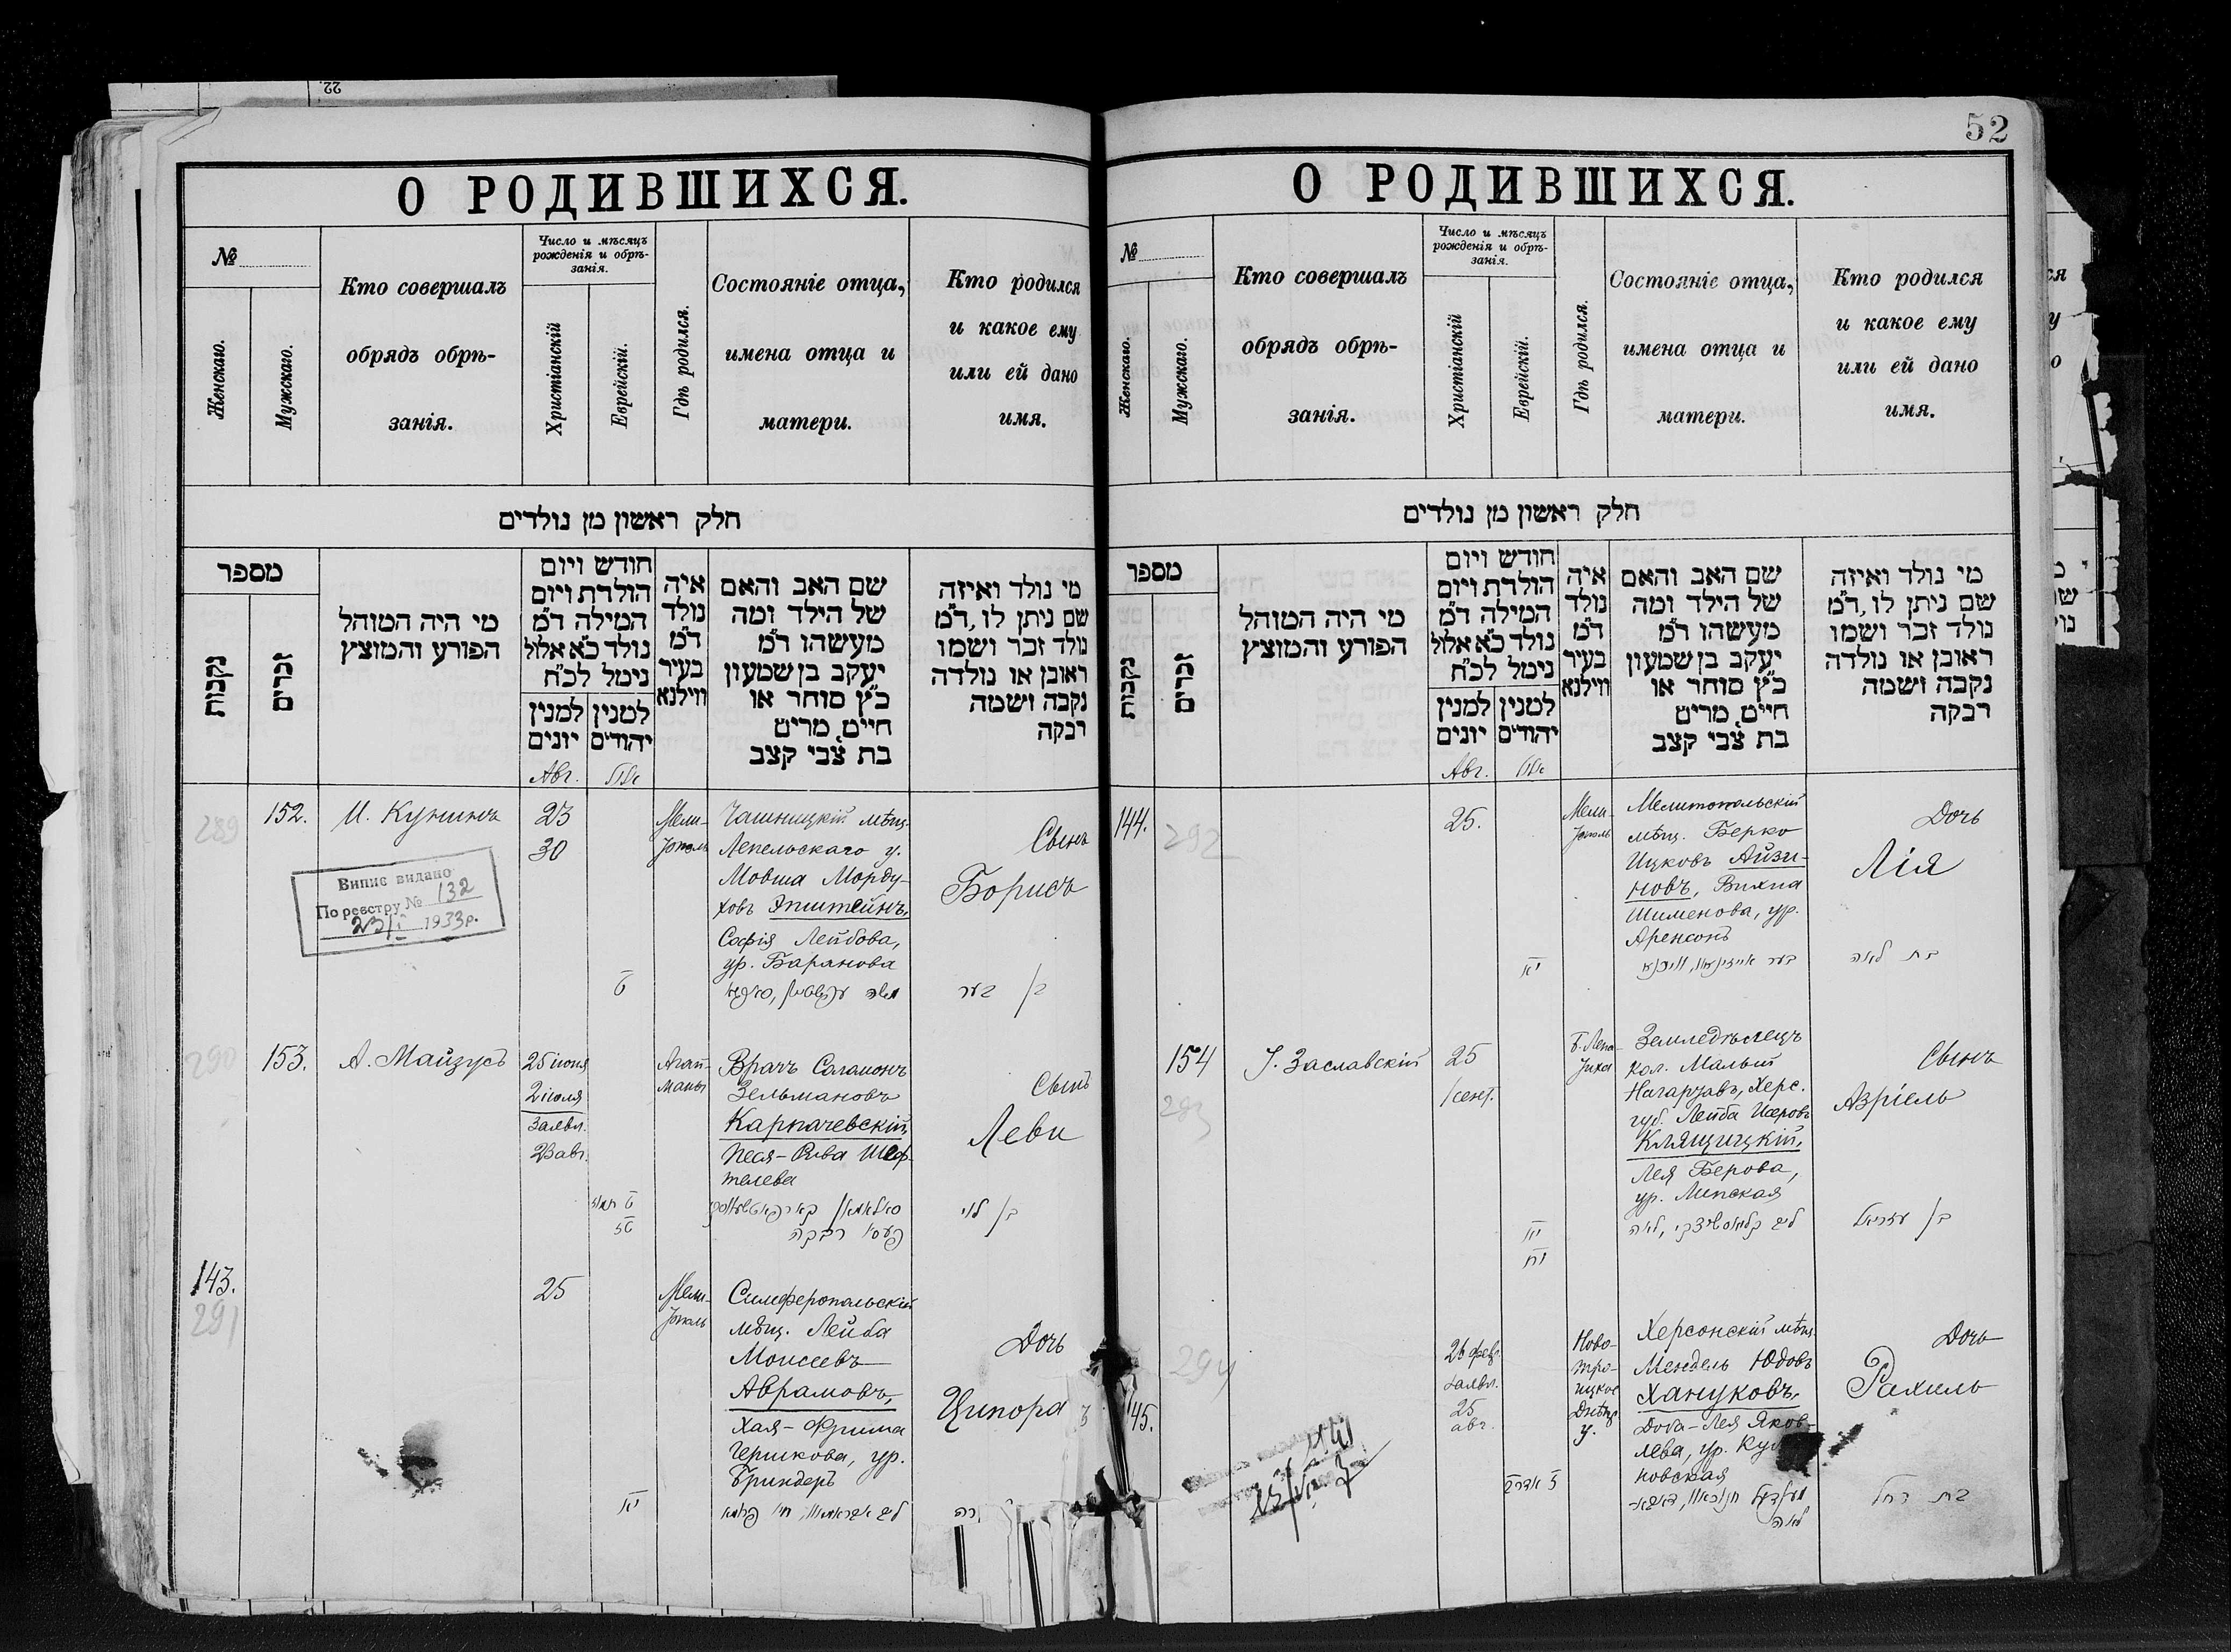 22.
52
О РОДИВШИХСЯ.
№
Женскаго.
Мужскаго.
Кто совершалъ
обрядъ обрѣ-
занія.
Число и мѣсяцъ
рожденія и обрѣ-
занія.
Христіанскій
Еврейскій.
Гдѣ родился.
Состояніе отца,
имена отца и
матери.
Кто родился
и какое ему
или ей дано
имя.
חלק ראשון מן נולדים
מספר
נקבות
זכרים
מי היה המוהל
הפורע והמוצץ
חודש ויום
הולדת ויום
המילה ד״מ
נולד כ״א אלול
נימל לכ״ח
למנין
יונים
למנין
יהודים
איה
נולד
ד״מ
בעיר
ווילנא
שם האב והאם
של הילד ומה
מעשהו ד״מ
יעקב בן שמעון
כ״ץ סוחר או
חיים, מרים
בת צבי קצב
מי נולד ואיזה
שם ניתן לו, ד״מ
נולד זכר ושמו
ראובן או נולדה
נקבה ושמה
רבקה
Авг.
אלול
289
152.
И. Кунинъ
23
30
Мели-
тополь
Чашницкій мѣщ.
Лепельскаго у.
Мовша Морду-
ховъ Эпштейнъ,
Софія Лейбова,
ур. Баранова
Сынъ
Борисъ
ט
בן בער
Випис видано
По реєстру № 132
23/I 1933 р.
290
153.
А. Майзусъ
25 іюня
2 іюля
Заявл.
23 авг.
Агай-
маны
Врачъ Саламонъ
Зельмановъ
Карпачевскій,
Песя-Рива Шеф-
телева
Сынъ
Леви
ט תמוז
טז
פעסיא רבקה
בן לוי
143.
291
25
Мели-
тополь
Симферопольскій
мѣщ. Лейба
Моисеевъ
Аврамовъ,
Хая-Фрима
Гершкова, ур.
Бриндеръ
Дочь
Ципора
יא
О РОДИВШИХСЯ.
№
Женскаго.
Мужскаго.
Кто совершалъ
обрядъ обрѣ-
занія.
Число и мѣсяцъ
рожденія и обрѣ-
занія.
Христіанскій
Еврейскій.
Гдѣ родился.
Состояніе отца,
имена отца и
матери.
Кто родился
и какое ему
или ей дано
имя.
חלק ראשון מן נולדים
מספר
נקבות
זכרים
מי היה המוהל
הפורע והמוצץ
חודש ויום
הולדת ויום
המילה ד״מ
נולד כ״א אלול
נימל לכ״ח
למנין
יונים
למנין
יהודים
איה
נולד
ד״מ
בעיר
ווילנא
שם האב והאם
של הילד ומה
מעשהו ד״מ
יעקב בן שמעון
כ״ץ סוחר או
חיים, מרים
בת צבי קצב
מי נולד ואיזה
שם ניתן לו, ד״מ
נולד זכר ושמו
ראובן או נולדה
נקבה ושמה
רבקה
Авг.
אלול
144.
292
25.
Мели-
тополь
Мелитопольскій
мѣщ. Берко
Ицковъ Айзи-
новъ, Вихна
Шименова, ур.
Аренсонъ
Дочь
Лія
יא
בת לאה
154
293
І. Заславскій
25
1 сент.
Б. Лепа-
тиха
Земледѣлецъ
кол. Малый
Нагартавъ, Херс.
губ. Лейба Исеровъ
Клящицкій,
Лея Берова,
ур. Липская
Сынъ
Азріель
יא
יח
בן עזריאל
145.
294
26 февр.
заявл.
25
авг.
Ново-
тро-
ицкое
Днѣпр.
у.
Херсонскій мѣщ.
Мендель Юдовъ
Хануковъ,
Доба-Лея Яков-
лева, ур.
новская
Дочь
Рахиль
לאה
בת רחל